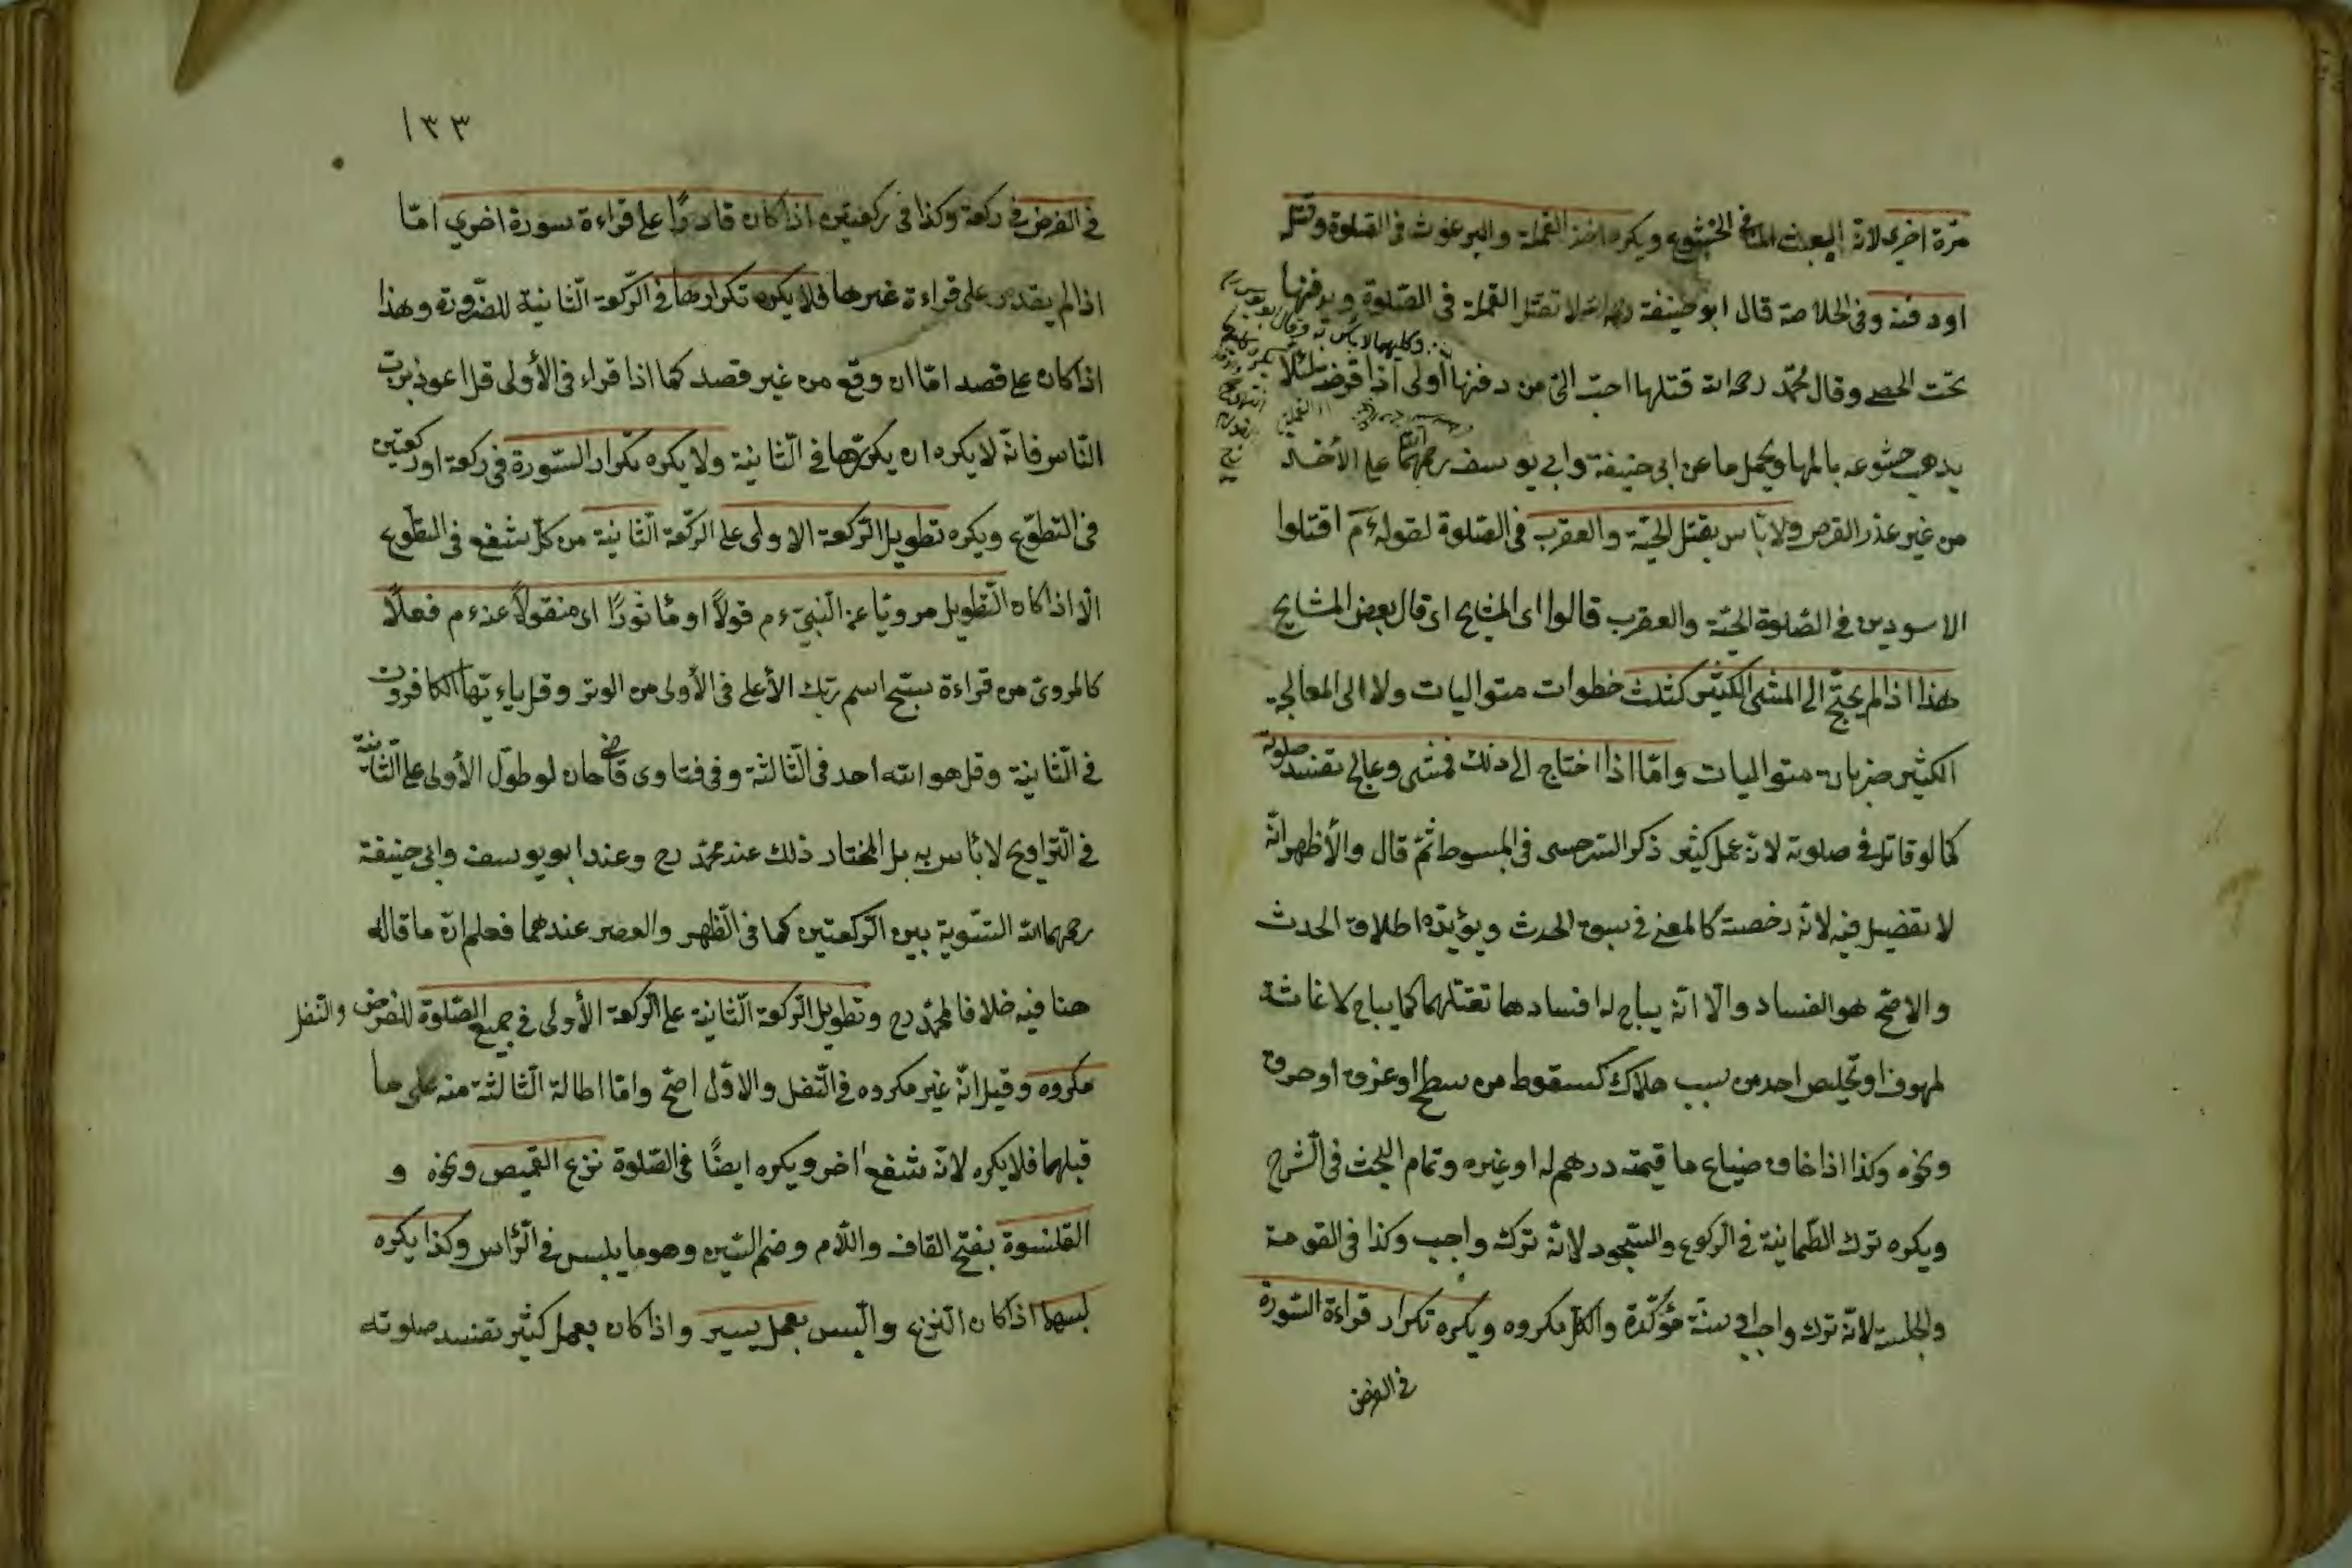 مرّة اخرى لانه العبث المنافى الخشوع ويكره اخذ القملة والبرغوث فى الصلوة وقتله
او دفنه وفى الخلاصة قال ابو حنيفة رحمه الله لا تقتل القملة فى الصلوة ويدفنها
تحت الحصى وقال محمّد رحمه الله قتلها احبّ الىّ من دفنها أولى اذا قرضه لئلا
يذهب خشوعه بالمها ويحمل ما عن ابى حنيفة وابى يوسف رحمهما الله على الأخذ
من غير عذر القرص ولا بأس بقتل الحيّة والعقرب فى الصّلوة لقوله ءم اقتلوا
الاسودين فى الصّلوة الحيّة والعقرب قالوا اى المشايخ اى قال بعض المشايخ
هذا اذا لم يحتج الى المشى الكثير كثلث خطوات متواليات ولا الى المعالجة
الكثير ضربات متواليات وامّا اذا احتاج الى ذلك فمشى وعالج تفسد صلوته
كما لو قاتل فى صلوته لانه عمل كثير ذكر السّرخسى فى المبسوط ثمّ قال والأظهر انّه
لا تفصيل فيه لانّه رخصة كالمعنى فى سبق الحدث ويؤيّده اطلاق الحدث
والاصّح هو الفساد والّا انّه يباح له افسادها لقتلهما كما يباح لاغاثة
لمهوف او تخليص احد من سبب هلاك كسقوط من سطح او غرق او حرق
ونحوه وكذا اذا خاف ضياع ما قيمته درهم له او غيره وتمام البحث فى الشّرح
ويكره ترك الطّمانينة فى الرّكوع والسّجود لانّه ترك واجب وكذا فى القومة
والجلسة لانّه ترك واجب او سنّة مؤكّدة والكلّ مكروه ويكره تكرار قراءة السّورة
فى الفرض
١٣٣
فى الفرض فى ركعة وكذا فى ركعتين اذا كان قادرًا على قراءة سورة اخرى امّا
اذا لم يقدر على قراءة غيرها فلا يكره تكرارها فى الرّكعة الثّانية للضّرورة وهذا
اذا كان على قصد امّا ان وقع من غير قصد كما اذا قراء فى الأولى قل اعوذ بربّ
النّاس فانّه لا يكره ان يكرّرها فى الثّانية ولا يكره تكرار السّورة فى ركعة او ركعتين
فى التطوّع ويكره تطويل الرّكعة الاولى على الركّعة الثّانية من كلّ شفع فى التطوّع
الّا اذا كان التّطويل مرويّا عن النّبىّ ءم قولًا او مأثورًا اى منقولًا عنه ءم فعلًا
كالمروىّ من قراءة سبّح اسم ربّك الأعلى فى الأولى من الوتر وقل ياءيّها الكافرون
فى الثّانية وقل هو الله احد فى الثّالثة وفى فتاوى قاضى خان لو طوّل الأولى على الثّانية
فى التّراويح لا بأس به بل المختار ذلك عند محمّد رح وعند ابو يوسف وابى حنيفة
رحمهما الله التسّوية بين الرّكعتين كما فى الظّهر والعصر عندهما فعلم انّ ما قاله
هنا فيه خلافا لمحمّد رح وتطويل الرّكعة الثّانية على الرّكعة الأولى فى جميع الصّلوة للفرض والنّفل
مكروه وقيل انّه غير مكروه فى النّفل والاوّل اصّح وامّا اطالة الثّالثة منه على ما
قبلهما فلا يكره لانّه شفع اخر ويكره ايضًا فى الصّلوة نزع القميص ونحوه و
القلنسوة بفتح القاف واللّام وضم السّين وهو ما يلبس فى الرّأس وكذا يكره
لبسهما اذا كان النّزع واللّبس بعمل يسير واذا كان بعمل كثير تفسد صلوته